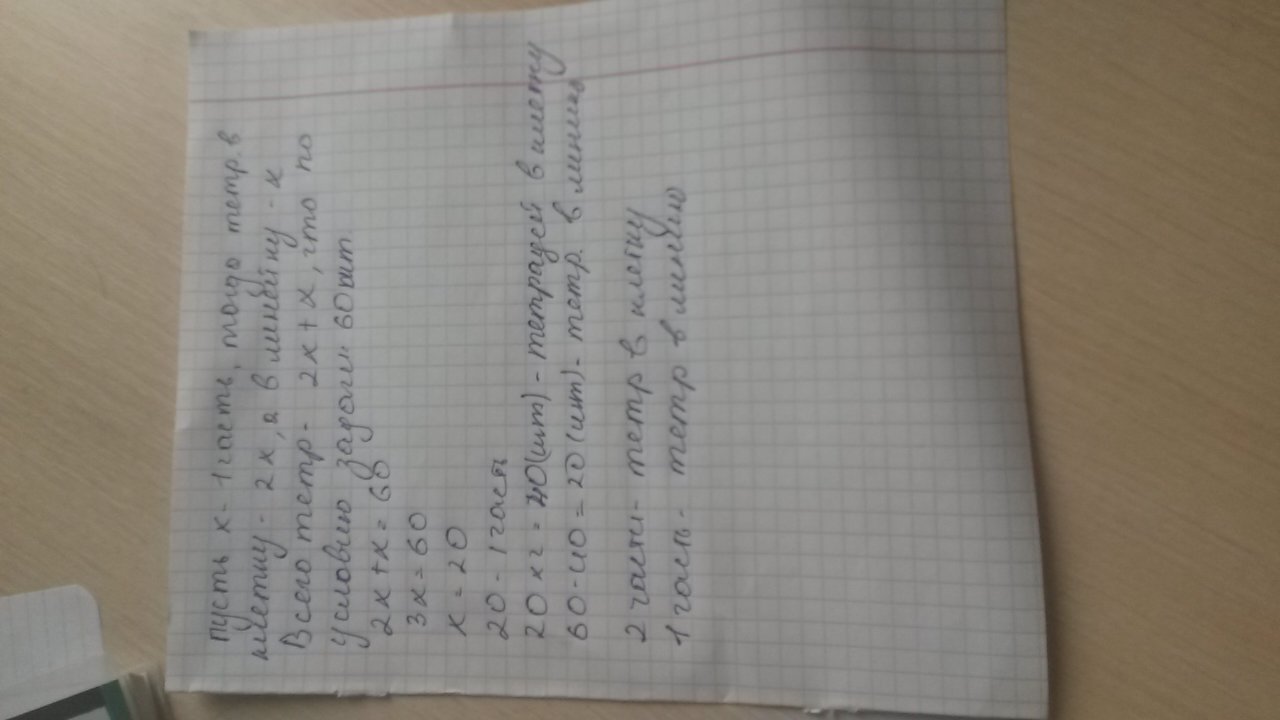 пусть x - 1 часть, тогда тетр. в
клетку - 2x, а в линейку - x
Всего тетр - 2x + x, что по
условию задачи 60 шт.
2x + x = 60
3x = 60
x = 20
20 - 1 часть
20 x 2 = 40 (шт) - тетрадей в клетку
60 - 40 = 20 (шт) - тетр. в линию
2 части - тетр в клетку
1 часть - тетр в линию